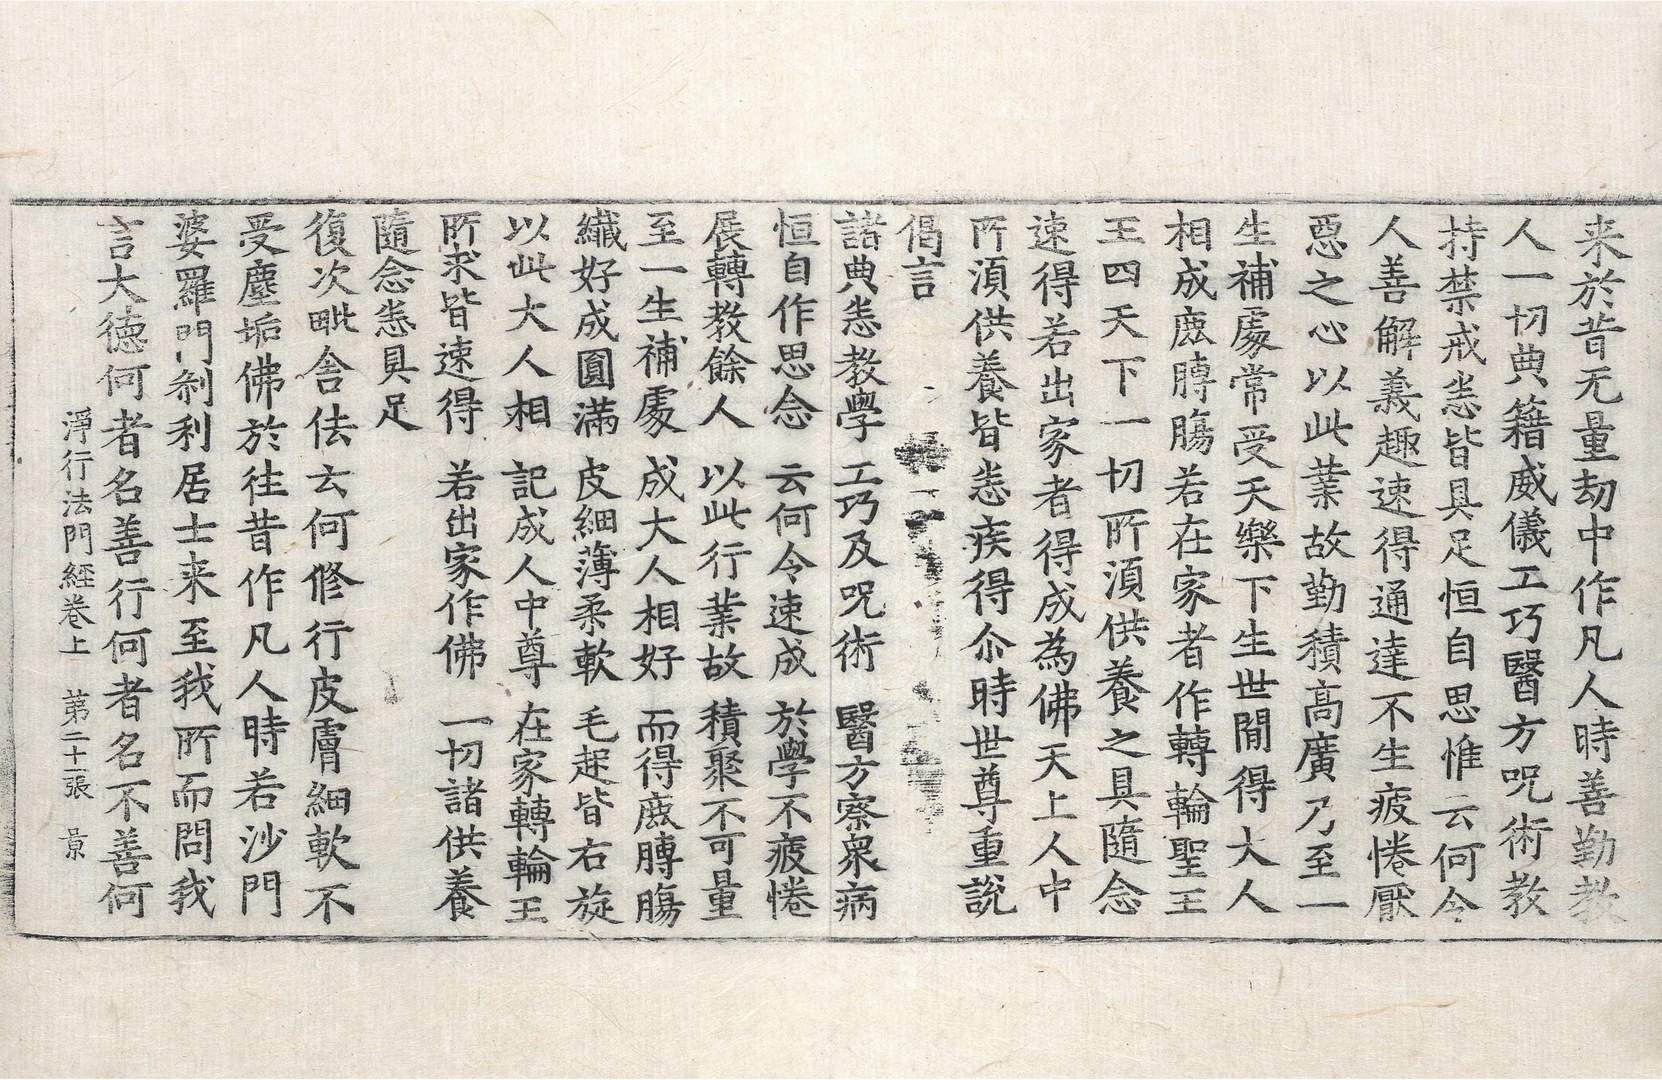 来於昔无量劫中作凡人時善勤教
人一切典籍威儀工巧醫方呪術教
持禁戒悉皆具足恒自思惟云何令
人善解義趣速得通達不生疲惓厭
惡之心以此業故勤積高廣乃至一
生補處常受天樂下生世間得大人
相成鹿䏝腸若在家者作轉輪聖王
王四天下一切所湏供養之具隨念
速得若出家者得成為佛天上人中
所湏供養皆悉疾得尒時世尊重說
偈言
諸典悉教學 工巧及呪術 醫方療衆病
恒自作思念 云何令速成 於學不疲惓
展轉教餘人 以此行業故 積聚不可量
至一生補處 成大人相好 而得鹿䏝腸
纖好成圓滿 皮細薄柔軟 毛起皆右旋
以此大人相 記成人中尊 在家轉輪王
所求皆速得 若出家作佛 一切諸供養
隨念悉具足
復次毗舍佉云何修行皮膚細軟不
受塵垢佛於往昔作凡人時若沙門
婆羅門刹利居士来至我所而問我
言大德何者名善行何者名不善何
淨行法門經卷上 第二十一張 景